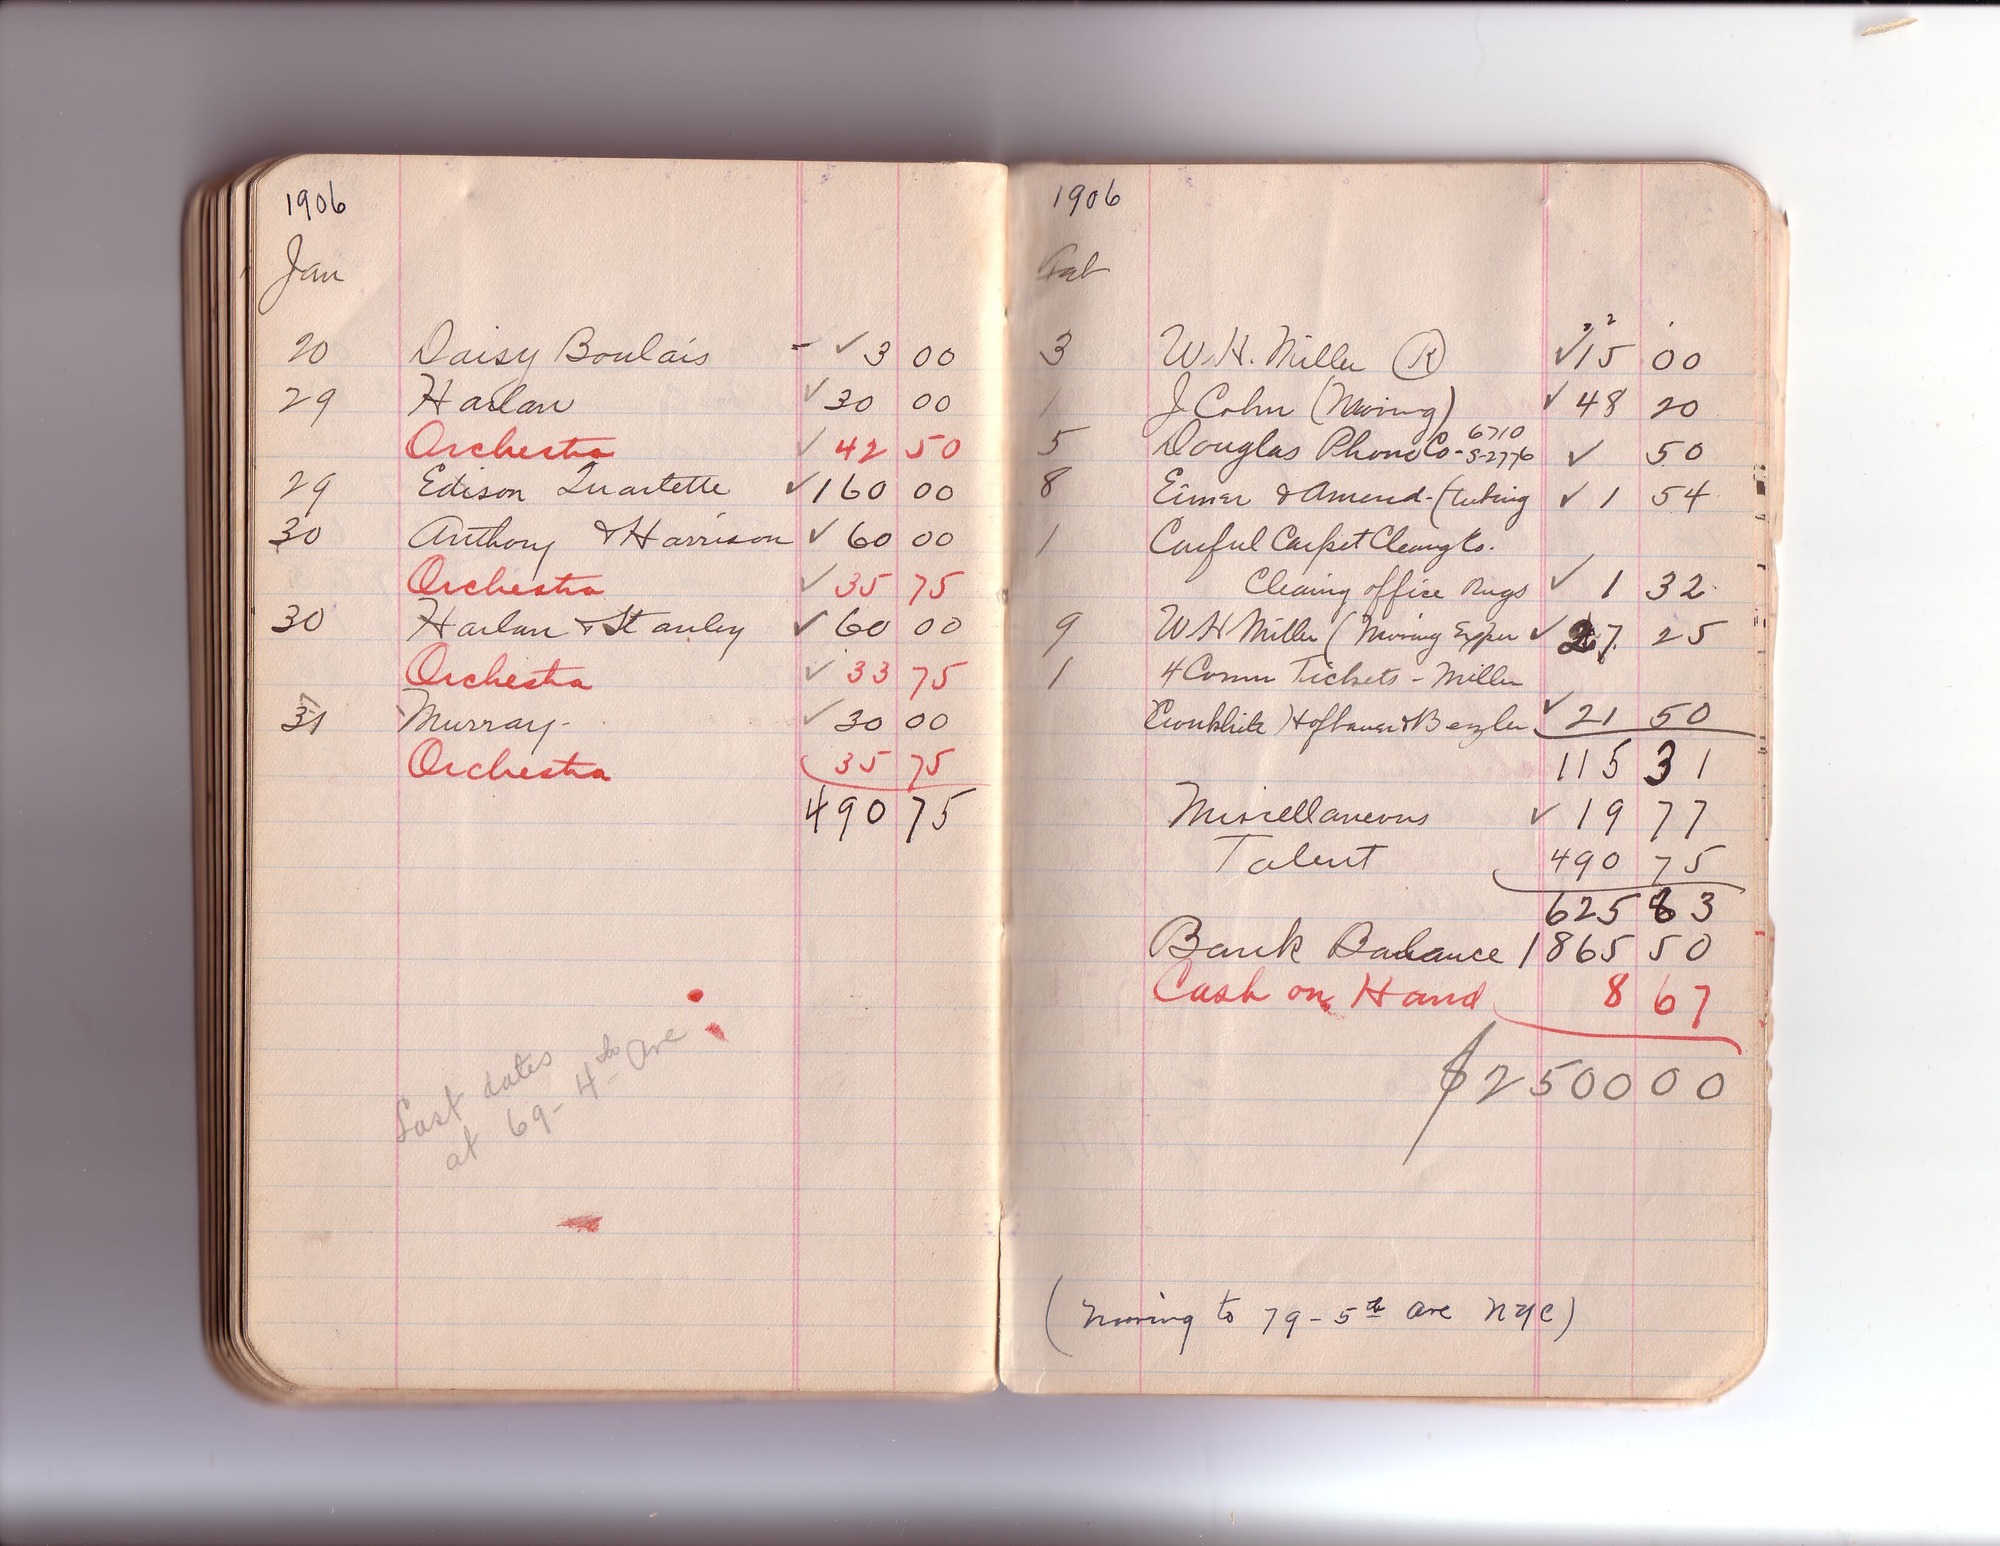 1906
Jan
20 Daisy Boulais - ✓ 3 00
29 Harlan ✓ 30 00
Orchestra ✓ 42 50
29 Edison Quartette ✓ 160 00
30 Anthony & Harrison ✓ 60 00
Orchestra ✓ 35 75
30 Harlan & Stanley ✓ 60 00
Orchestra ✓ 33 75
31 Murray - ✓ 30 00
Orchestra 35 75
490 75
Last dates
at 69 - 4th Ave
1906
Feb
3 W.H. Miller (R) ✓ 15 00
1 J Cohn (Moving) ✓ 48 20
5 Douglas Phono Co - 6710 S-2776 ✓ 50
8 Eimer & Amend - (tubing ✓ 1 54
1 Careful Carpet Cleang Co.
Cleaning office Rugs ✓ 1 32
9 W H Miller (Moving Expen ✓ 27 25
1 4 Comm Tickets - Miller
Cronkhite Hofbauer & Benzler ✓ 21 50
115 31
Miscellaneous ✓ 19 77
Talent 490 75
625 83
Bank Balance 1865 50
Cash on Hand 8 67
$2500 00
(Moving to 79 - 5th ave NYC)